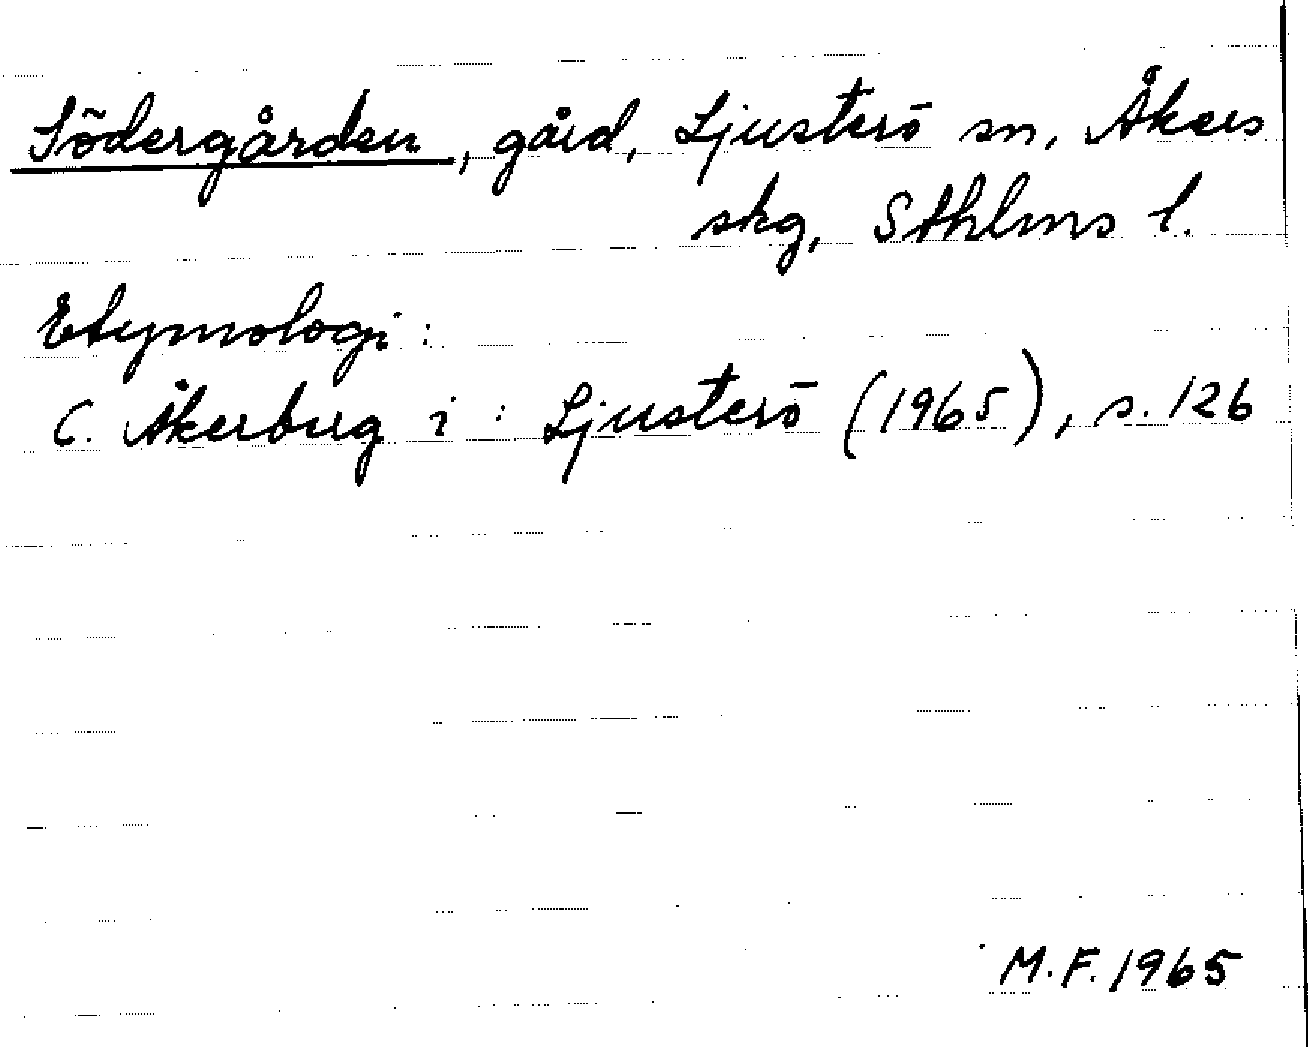 Södergården, gård, Ljusterö sn, Åkers
skg, Sthlms l.
Etymologi:
C. Åkerberg i: Ljusterö (1965), s. 126
M.F. 1965